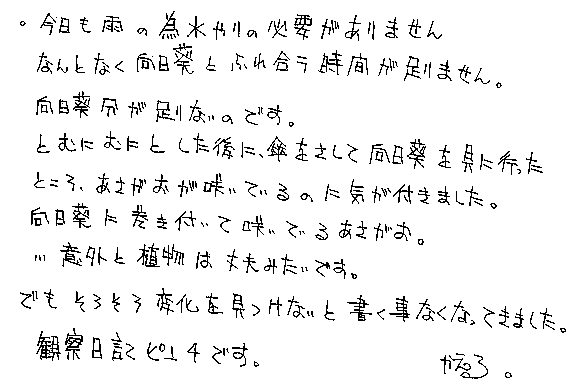 。今日も雨の為水やりの必要がありません
なんとなく向日葵とふれ合う時間が足りません。
向日葵分が足りないのです。
とむにむにとした後に、傘をさして向日葵を見に行った
ところ、あさがおが咲いているのに気が付きました。
向日葵に巻き付いて咲いているあさがお。
… 意外と植物は丈夫みたいです。
でもそろそろ変化を見つけないと書く事なくなってきました。
観察日記でピュ4です。